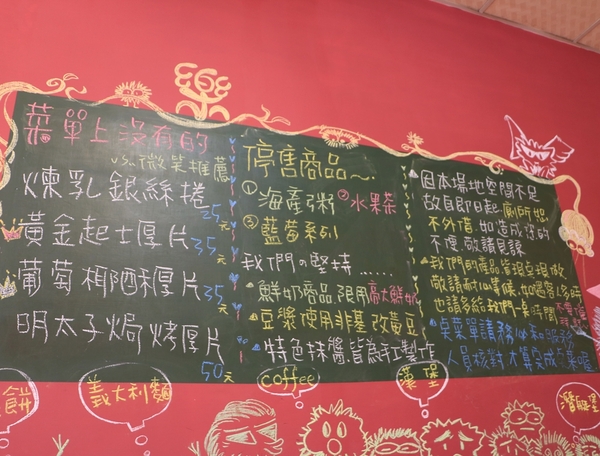 菜單上沒有的
vs.微笑推薦
煉乳銀絲捲
25元
黃金起士厚片
35元
葡萄椰酒穌厚片
35元
明太子焗烤厚片
50元
停售商品~.
①海產粥 ②水果茶
③藍莓系列
我們の堅持......
鮮奶商品限用高大鮮奶
豆漿使用非基改黃豆
特色抹醬皆為手工製作
因本場地空間不足
故自即日起.廁所恕
不外借.如造成您的
不便.敬請見諒
我們的產品皆現点現做
敬請耐心等候.如遇客人多時
也請多給我們一点時間
点菜單請務必
人員核對
餅
義大利麵
coffee
漢堡
潛艇堡